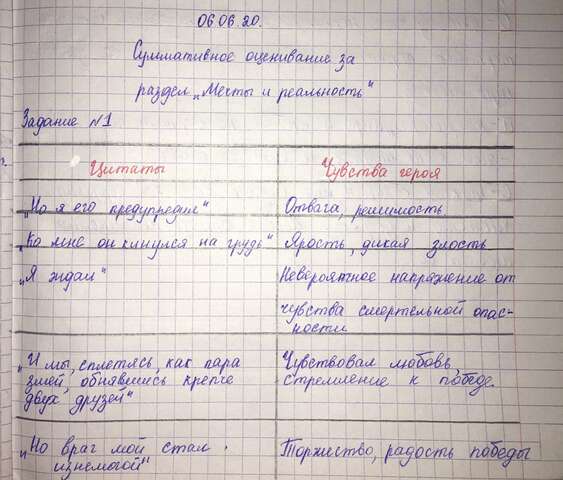 06 06 20.
Суммативное оценивание за
раздел „Мечты и реальность“
Задание №1
Цитаты Чувства героя
„Но я его предупредил“ Отвага, решимость
„Ко мне он кинулся на грудь“ Ярость, дикая злость
„Я ждал“ Невероятное напряжение от
чувства смертельной опас-
ности
„И мы, сплетясь, как пара Чувствовал любовь,
змей, обнявшись крепче стремление к победе.
двух друзей“
„Но враг мой стал Торжество, радость победы
изнемогой“